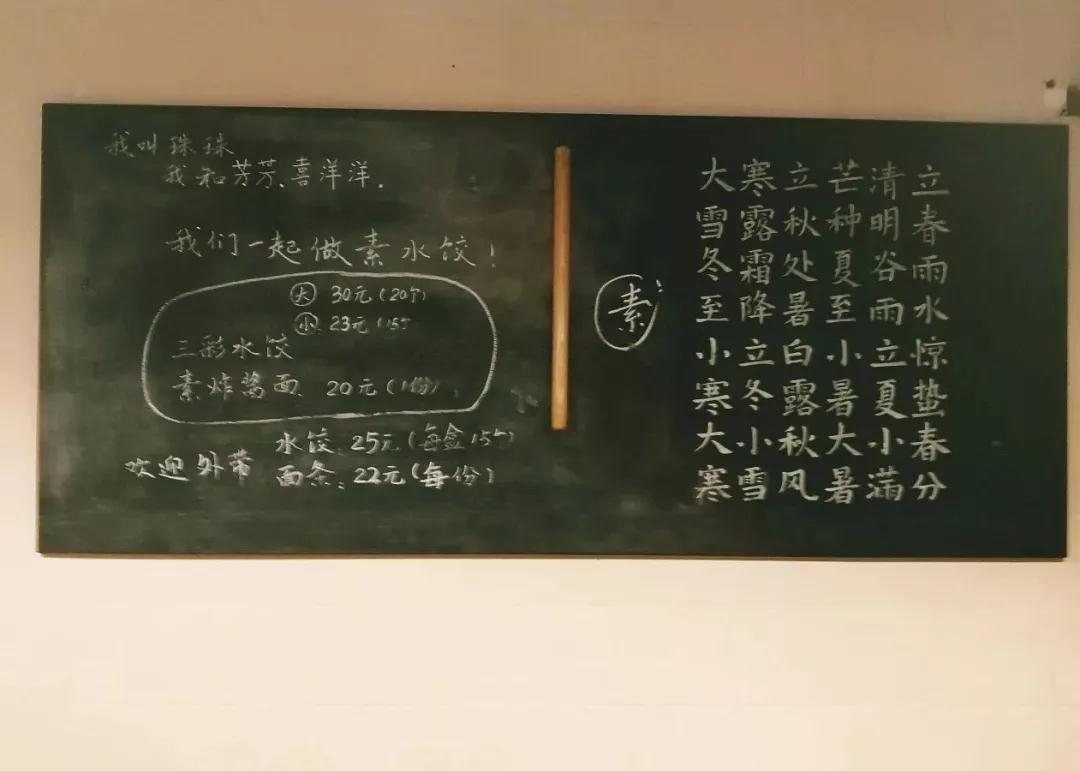 我叫珠珠
我和芳芳、喜洋洋.
我们一起做素水饺!
大 30元(20个)
小 23元(15个
三彩水饺
素炸酱面 20元(1份)
水饺: 25元(每盒15个)
欢迎外带 面条: 22元(每份)
素
立春雨水惊蛰春分
清明谷雨立夏小满
芒种夏至小暑大暑
立秋处暑白露秋风
寒露霜降立冬小雪
大雪冬至小寒大寒